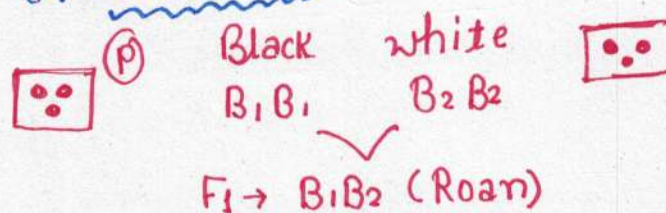 Ⓟ Black white
B₁B₁ B₂B₂
F₁ → B₁B₂ (Roan)